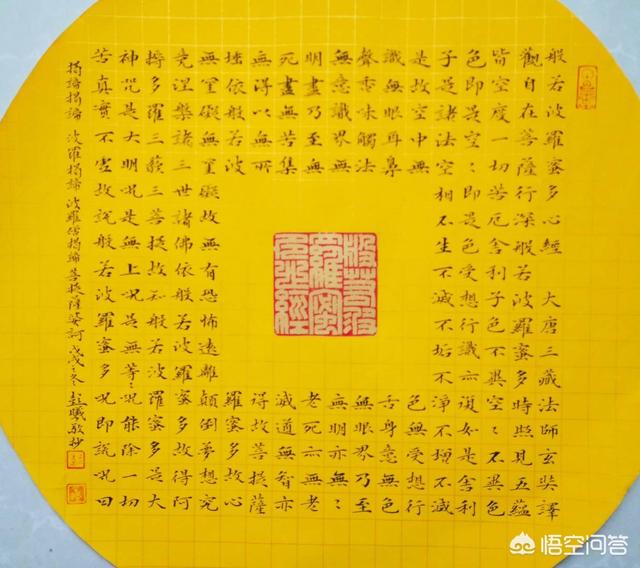 般若波羅蜜多心經 大唐三藏法師玄奘譯
觀自在菩薩行深般若波羅蜜多時照見五蘊
皆空度一切苦厄舍利子色不異空〻不異色
色即是空〻即是色受想行識亦復如是舍利
子是諸法空相不生不滅不垢不淨不增不減
是故空中無 色無受想行
識無眼耳鼻 舌身意無色
聲香味觸法 無眼界乃至
無意識界無 無明亦無〻
明盡乃至無 老死亦無老
死盡無苦集 滅道無智亦
無得以無所 得故菩提薩
埵依般若波 羅蜜多故心
無罣礙無罣礙故無有恐怖遠離顛倒夢想究
竟涅槃諸三世諸佛依般若波羅蜜多故得阿
耨多羅三藐三菩提故知般若波羅蜜多是大
神呪是大明呪是無上呪是無等〻呪能除一切
苦真實不虛故說般若波羅蜜多呪即說呪曰
揭諦揭諦 波羅揭諦 波羅僧揭諦 菩提薩婆訶 戊戌之冬 彭曦敬抄
般若波羅蜜多心經
悟空问答